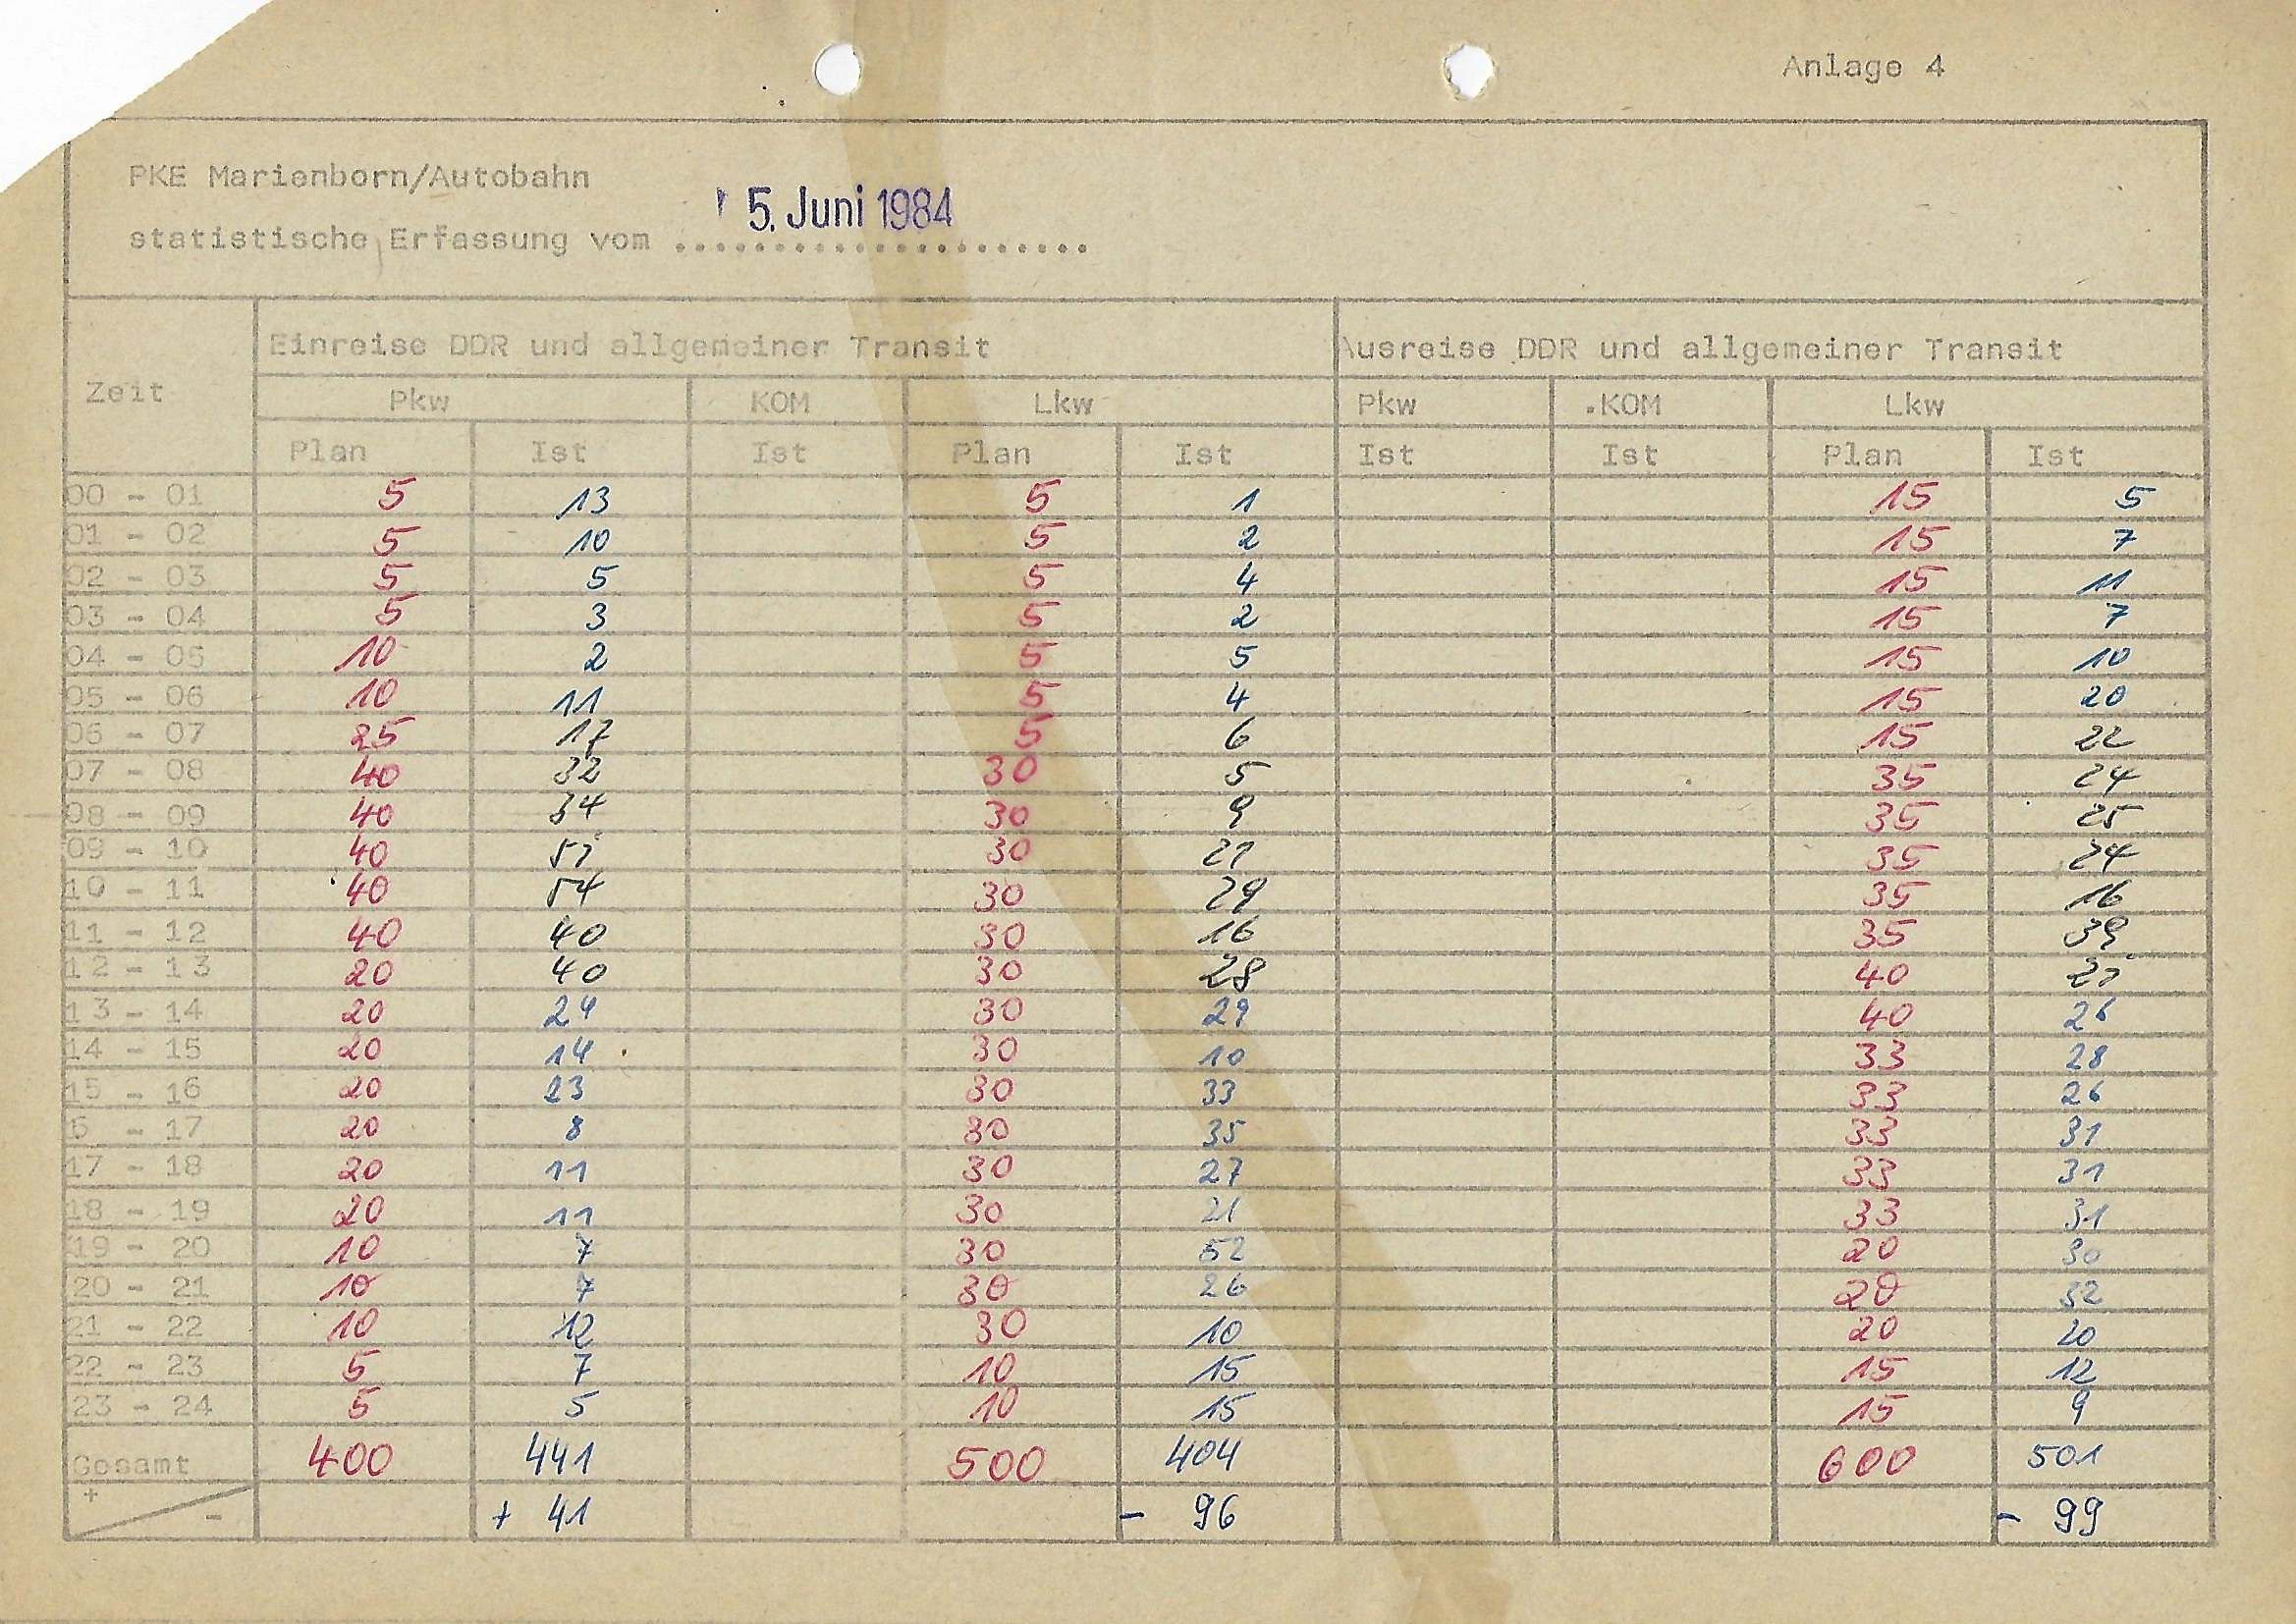 Anlage 4
PKE Marienborn/Autobahn
statistische Erfassung vom 5. Juni 1984
Zeit Einreise DDR und allgemeiner Transit Ausreise DDR und allgemeiner Transit
Pkw KOM Lkw Pkw KOM Lkw
Plan Ist Ist Plan Ist Ist Ist Plan Ist
00 - 01 5 13 5 1 15 5
01 - 02 5 10 5 2 15 7
02 - 03 5 5 5 4 15 11
03 - 04 5 3 5 2 15 7
04 - 05 10 2 5 5 15 10
05 - 06 10 11 5 4 15 20
06 - 07 25 17 5 6 15 22
07 - 08 40 32 30 5 35 24
08 - 09 40 34 30 9 35 25
09 - 10 40 51 30 21 35 24
10 - 11 40 54 30 28 35 16
11 - 12 40 40 30 16 35 33
12 - 13 20 40 30 28 40 21
13 - 14 20 24 30 29 40 26
14 - 15 20 14 30 10 33 28
15 - 16 20 23 30 33 33 26
6 - 17 20 8 30 35 33 31
17 - 18 20 11 30 27 33 31
18 - 19 20 11 30 21 33 31
19 - 20 10 7 30 52 20 30
20 - 21 10 7 30 26 20 32
21 - 22 10 12 30 10 20 20
22 - 23 5 7 10 15 15 12
23 - 24 5 5 10 15 15 9
Gesamt 400 441 500 404 600 501
+ - + 41 - 96 - 99